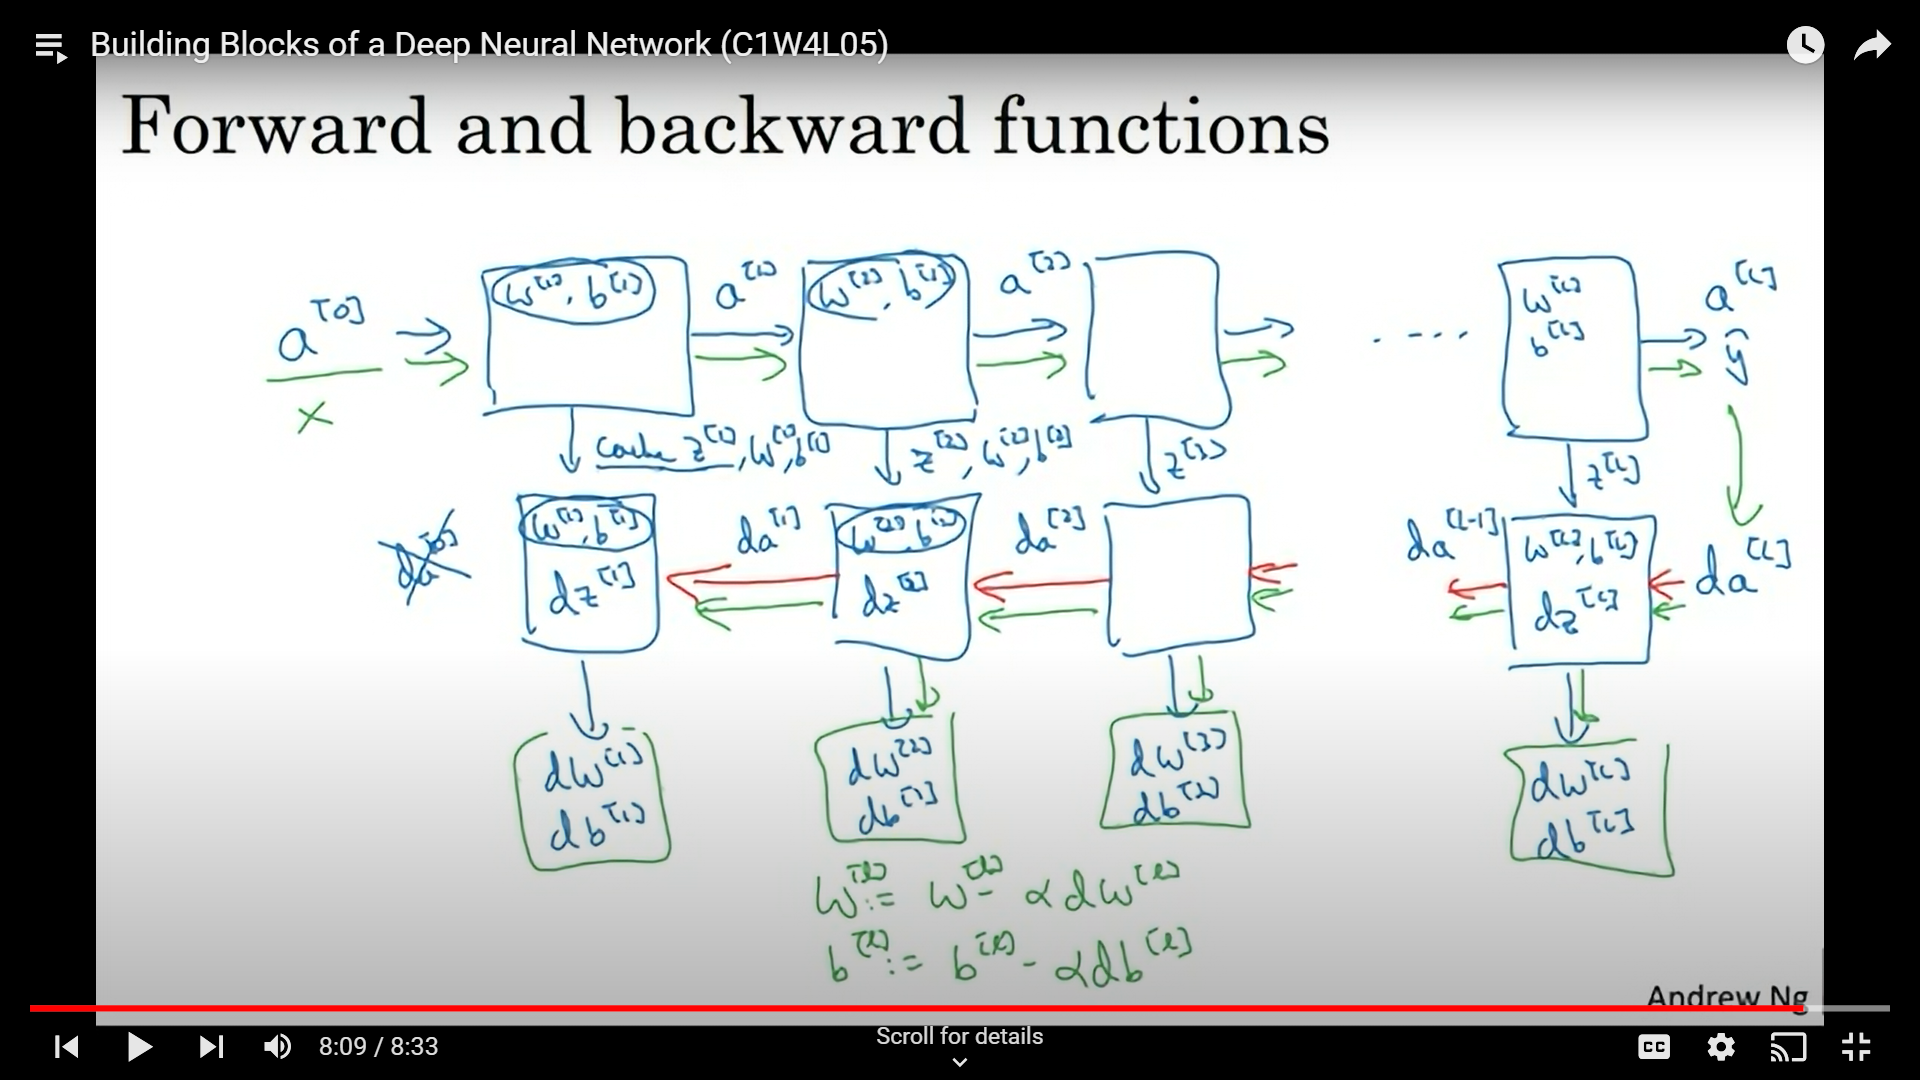 Building Blocks of a Deep Neural Network (C1W4L05)
Forward and backward functions
a^[0]
x
w^[1], b^[1]
a^[1]
w^[2], b^[1]
a^[2]
w^[L]
b^[L]
a^[L]
ŷ
cache z^[1], w^[1], b^[1]
z^[2], w^[2], b^[2]
z^[3]
z^[L]
da^[0]
w^[1], b^[1]
dz^[1]
da^[1]
w^[2], b^[2]
dz^[2]
da^[2]
da^[L-1]
w^[L], b^[L]
dz^[L]
da^[L]
dw^[1]
db^[1]
dw^[2]
db^[1]
dw^[3]
db^[2]
dw^[L]
db^[L]
w^[l] := w^[l] - αdw^[l]
b^[l] := b^[l] - αdb^[l]
Andrew Ng
8:09 / 8:33
Scroll for details
CC